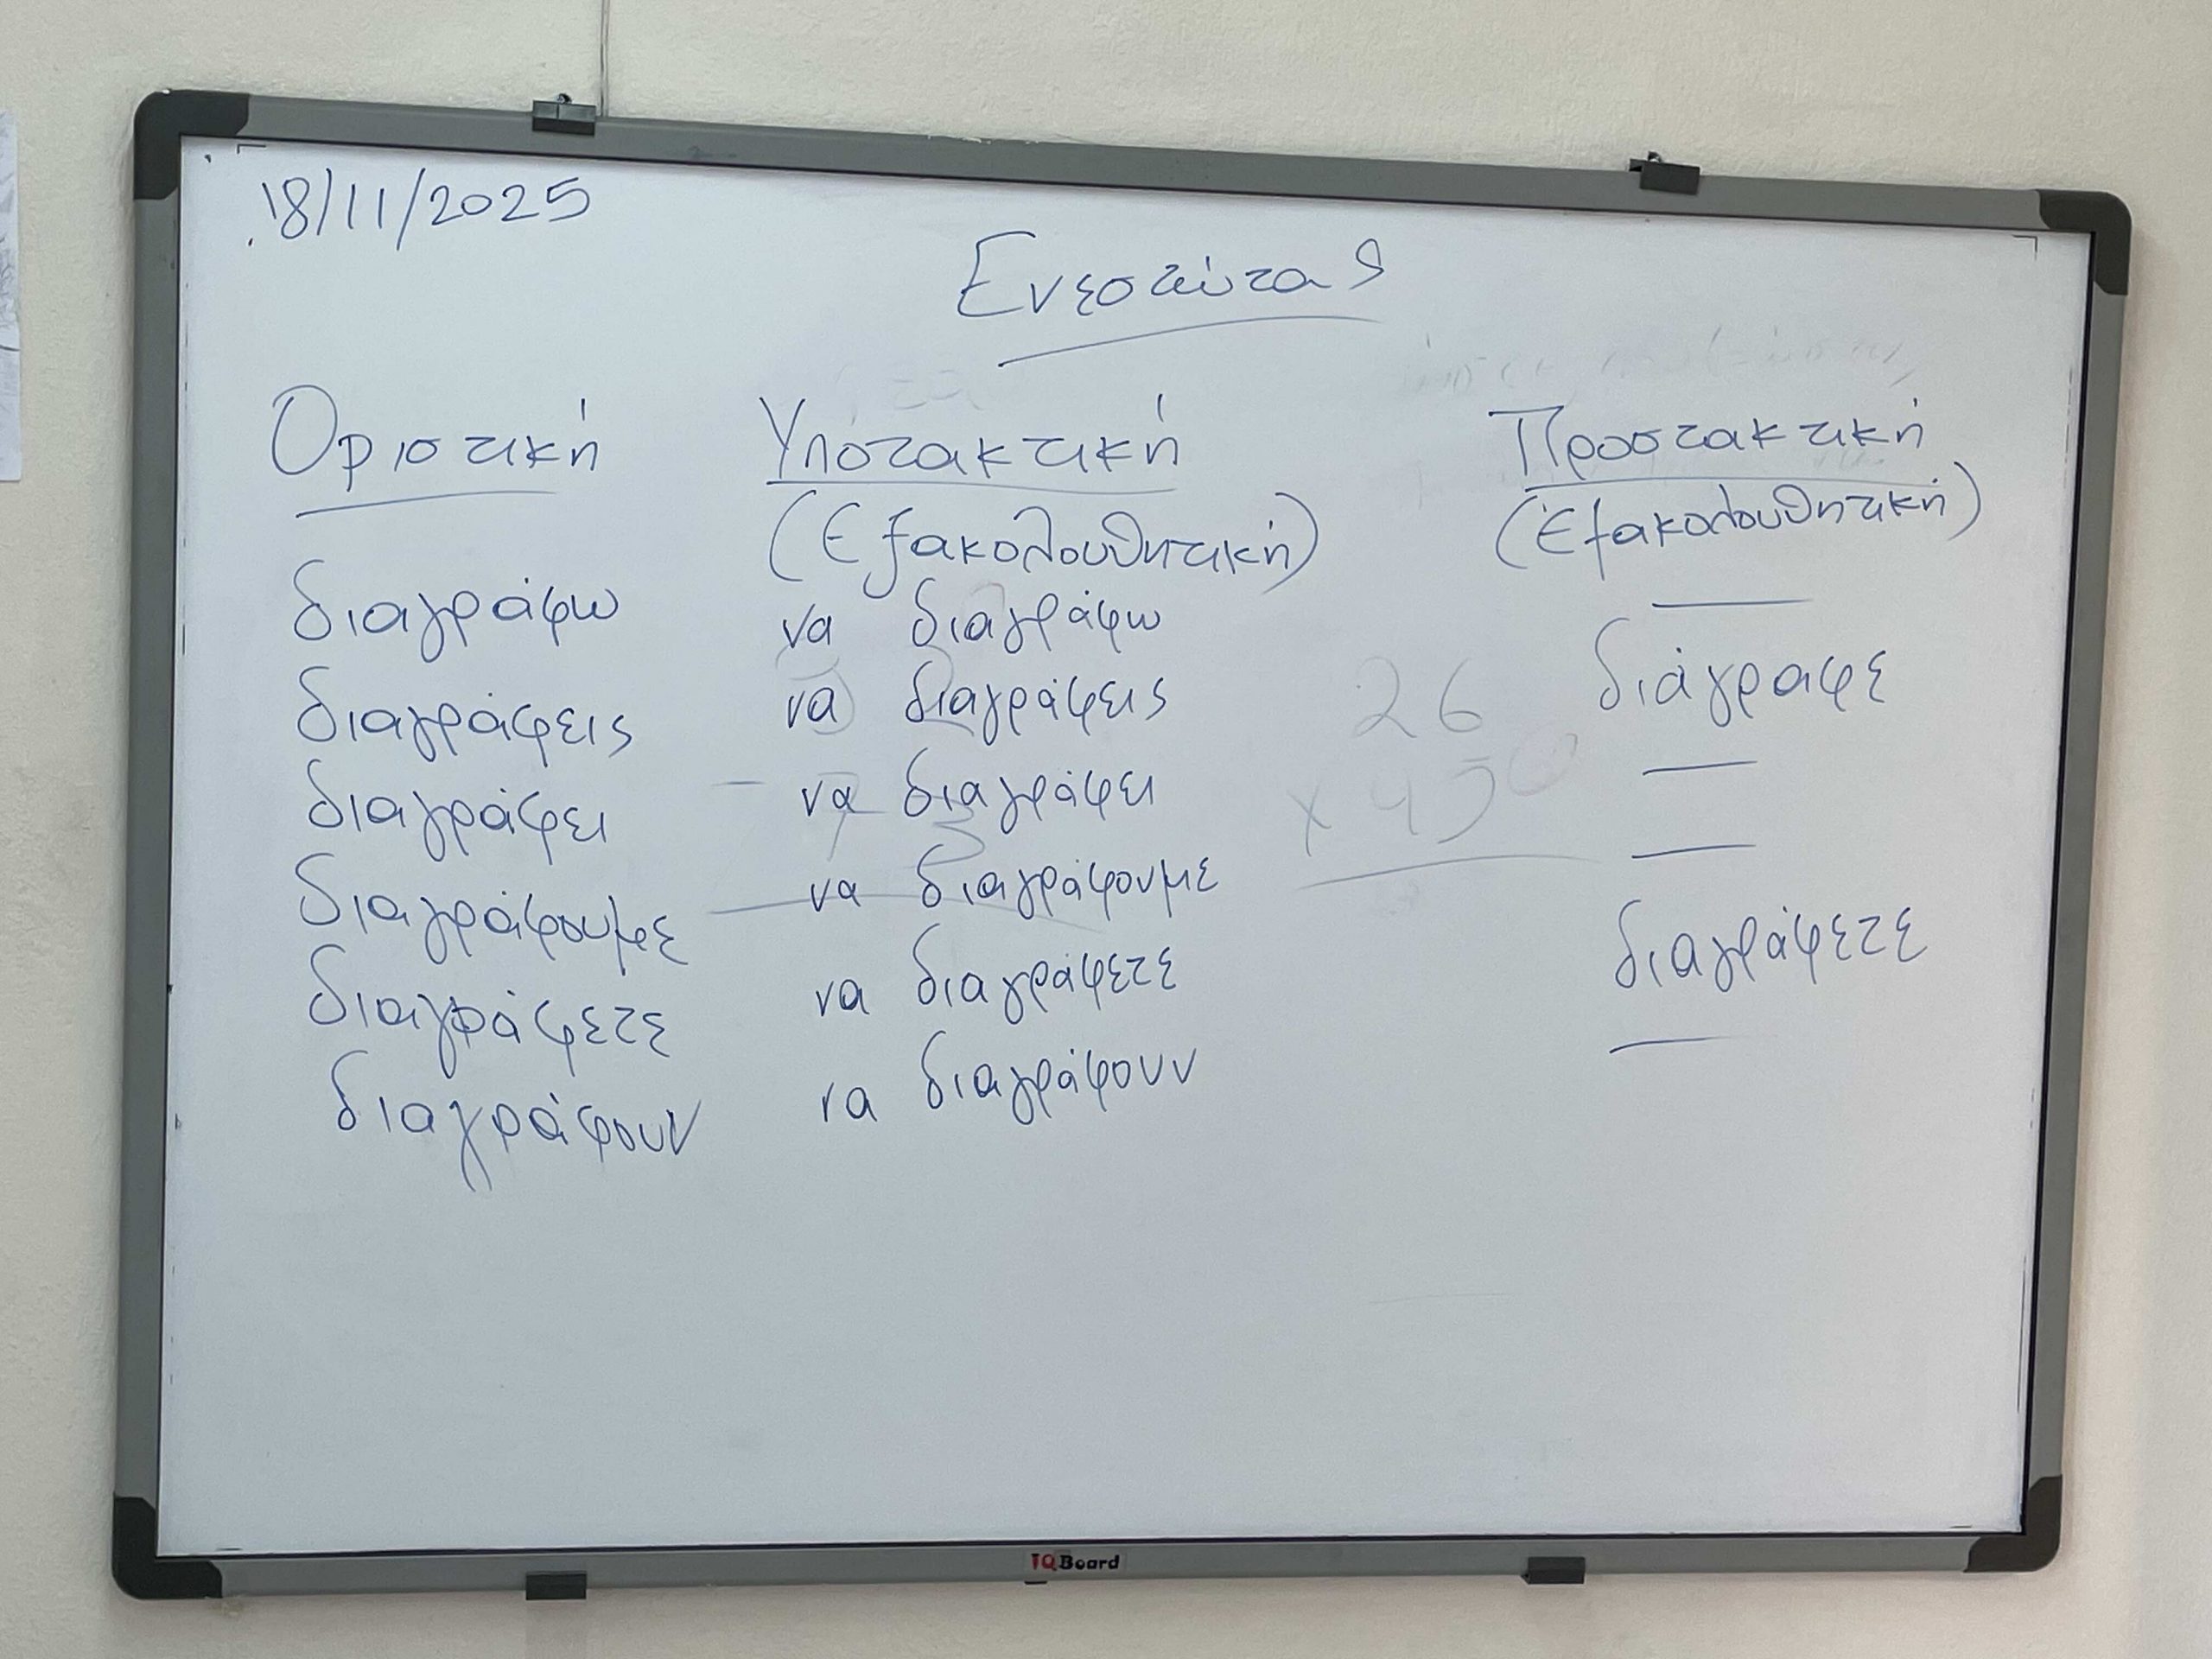 18/11/2025
Ενεστώτας
Οριστική Υποτακτική Προστακτική
(Εξακολουθητική) (Εξακολουθητική)
διαγράφω να διαγράφω —
διαγράφεις να διαγράφεις διάγραφε
διαγράφει να διαγράφει —
διαγράφουμε να διαγράφουμε —
διαγράφετε να διαγράφετε διαγράφετε
διαγράφουν να διαγράφουν —
26
x 450
IQBoard